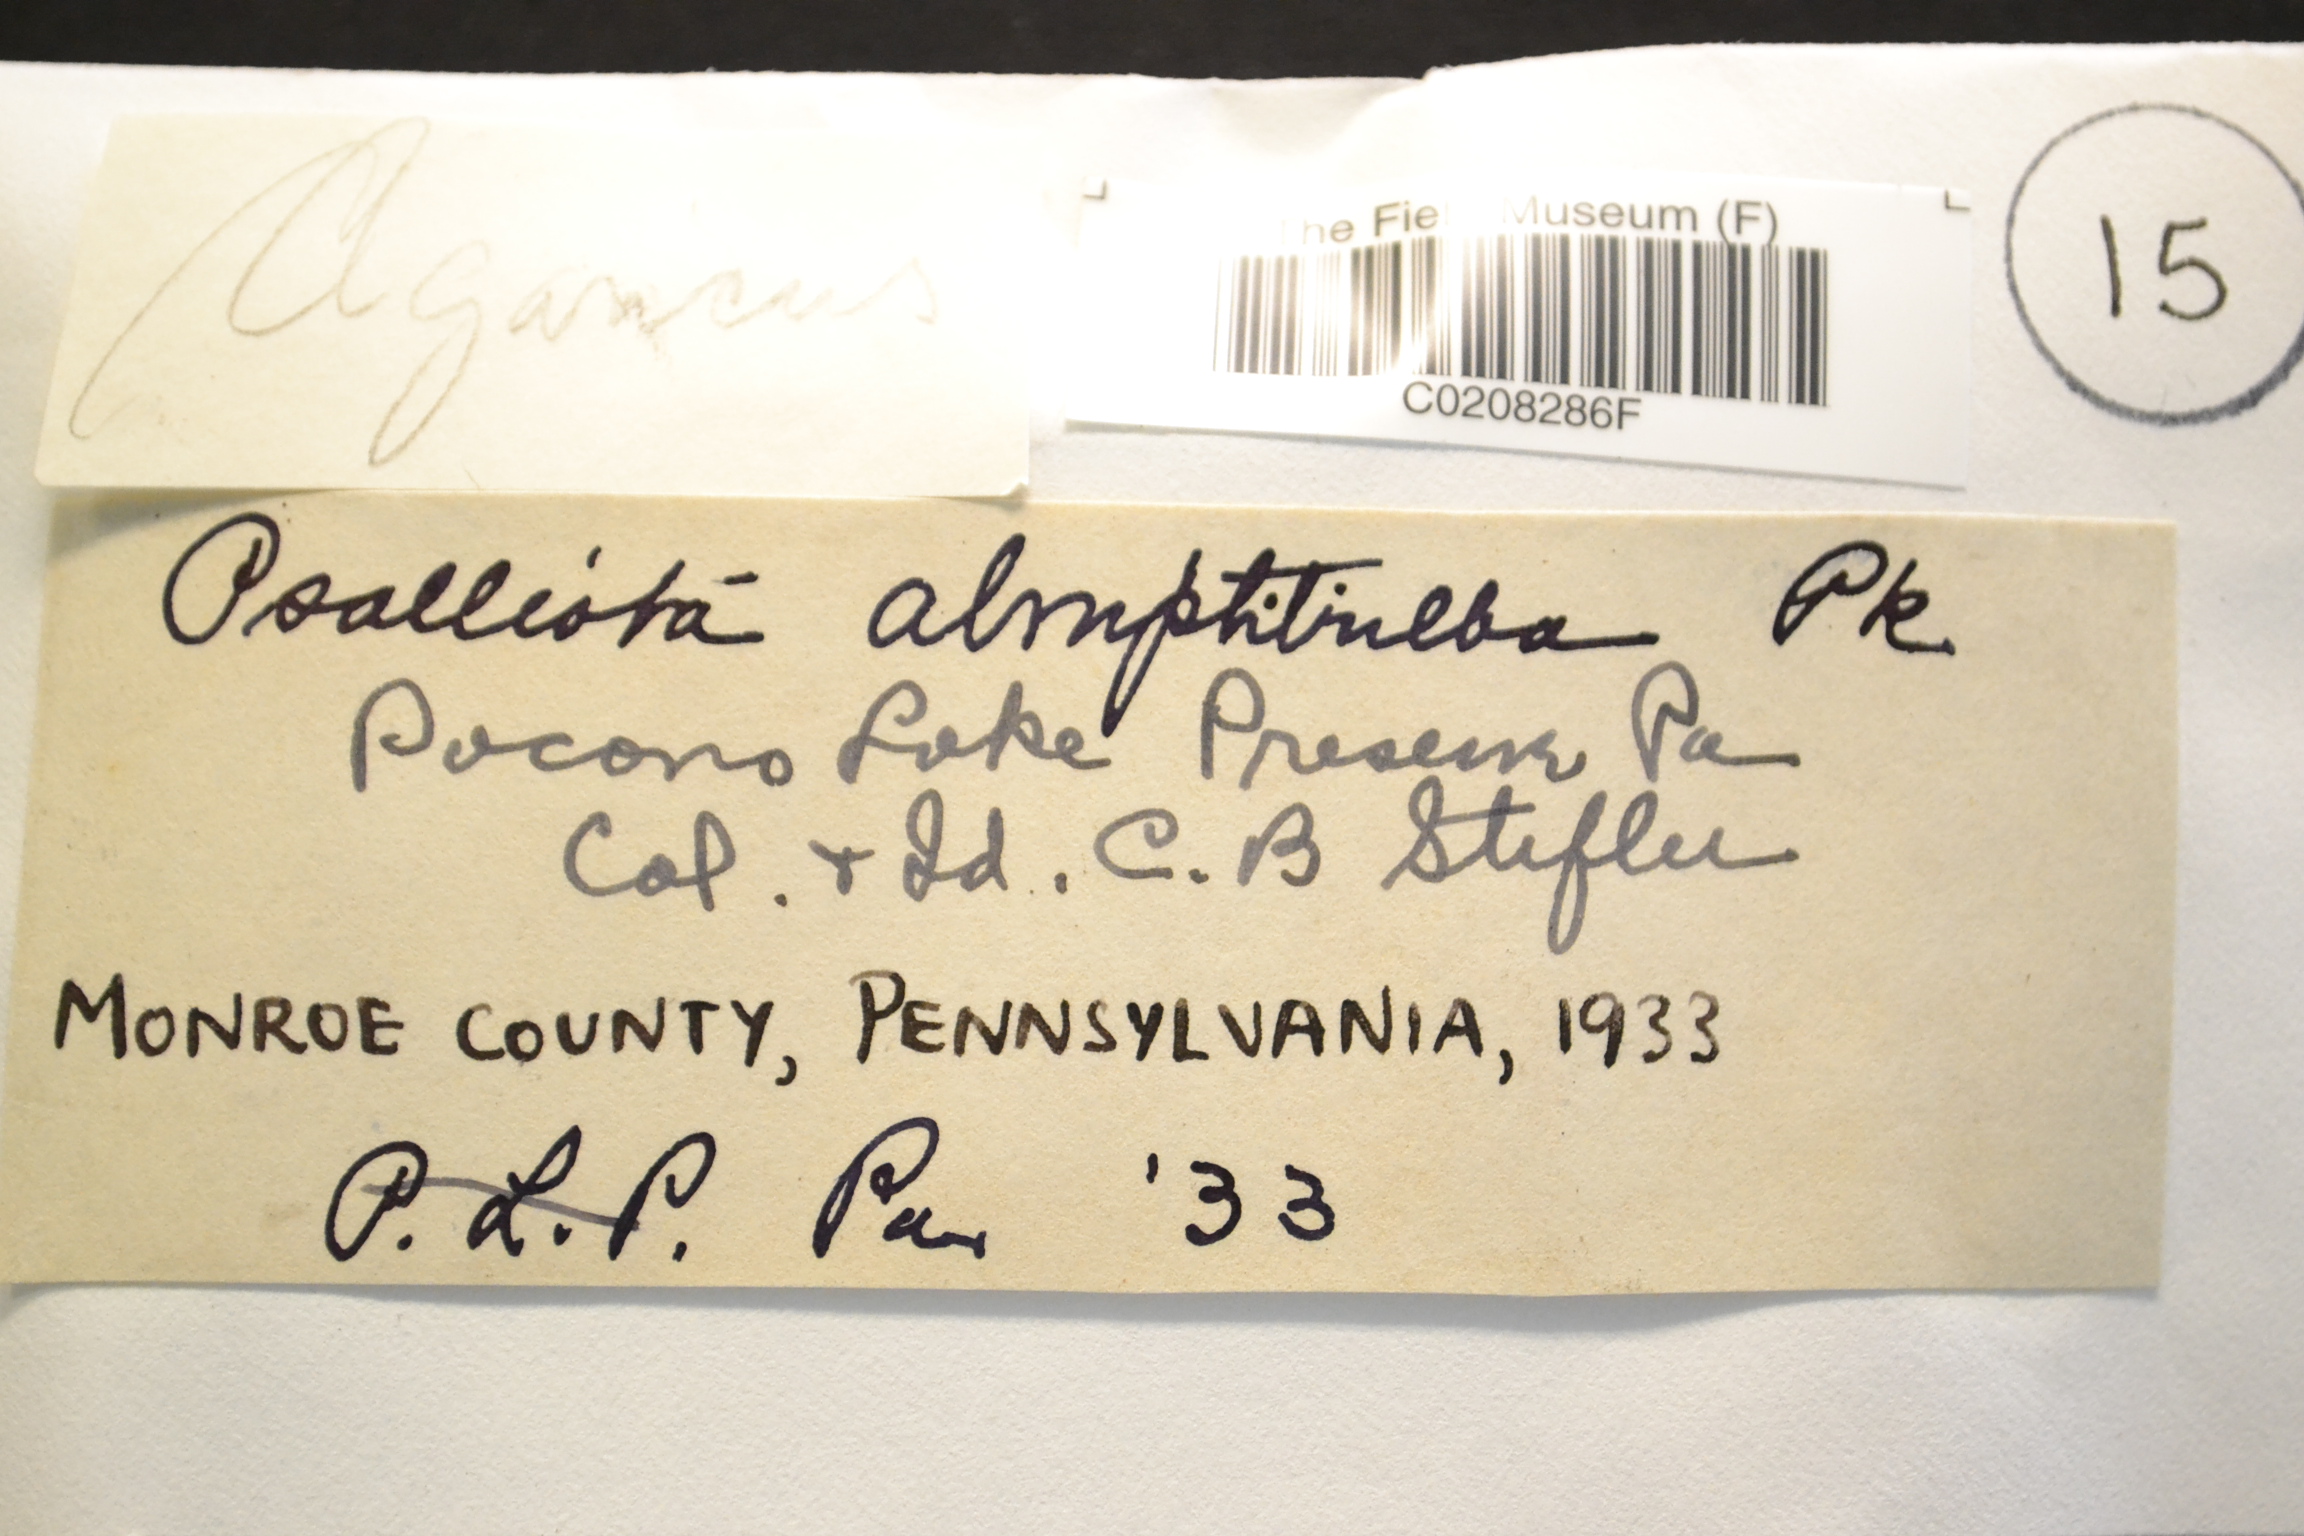 Agaricus
The Field Museum (F)
C0208286F
15
Psalliota abruptibulba Pk
Pocono Lake Preserve Pa
Col. + Id. C. B Stifler
MONROE COUNTY, PENNSYLVANIA, 1933
P. L. P. Pa. '33